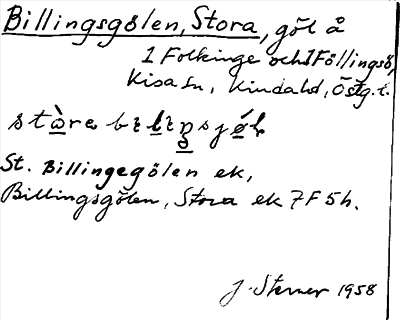 Billingsgölen, Stora, göl å
1 Folkinge och 1 Föllingsö,
Kisa sn, Kinda hd, Östg. l.
stὰre bɩlɩŋsjǿl
St. Billingegölen ek,
Billingsgölen, Stora ek 7F 5h.
J. Sterner 1958